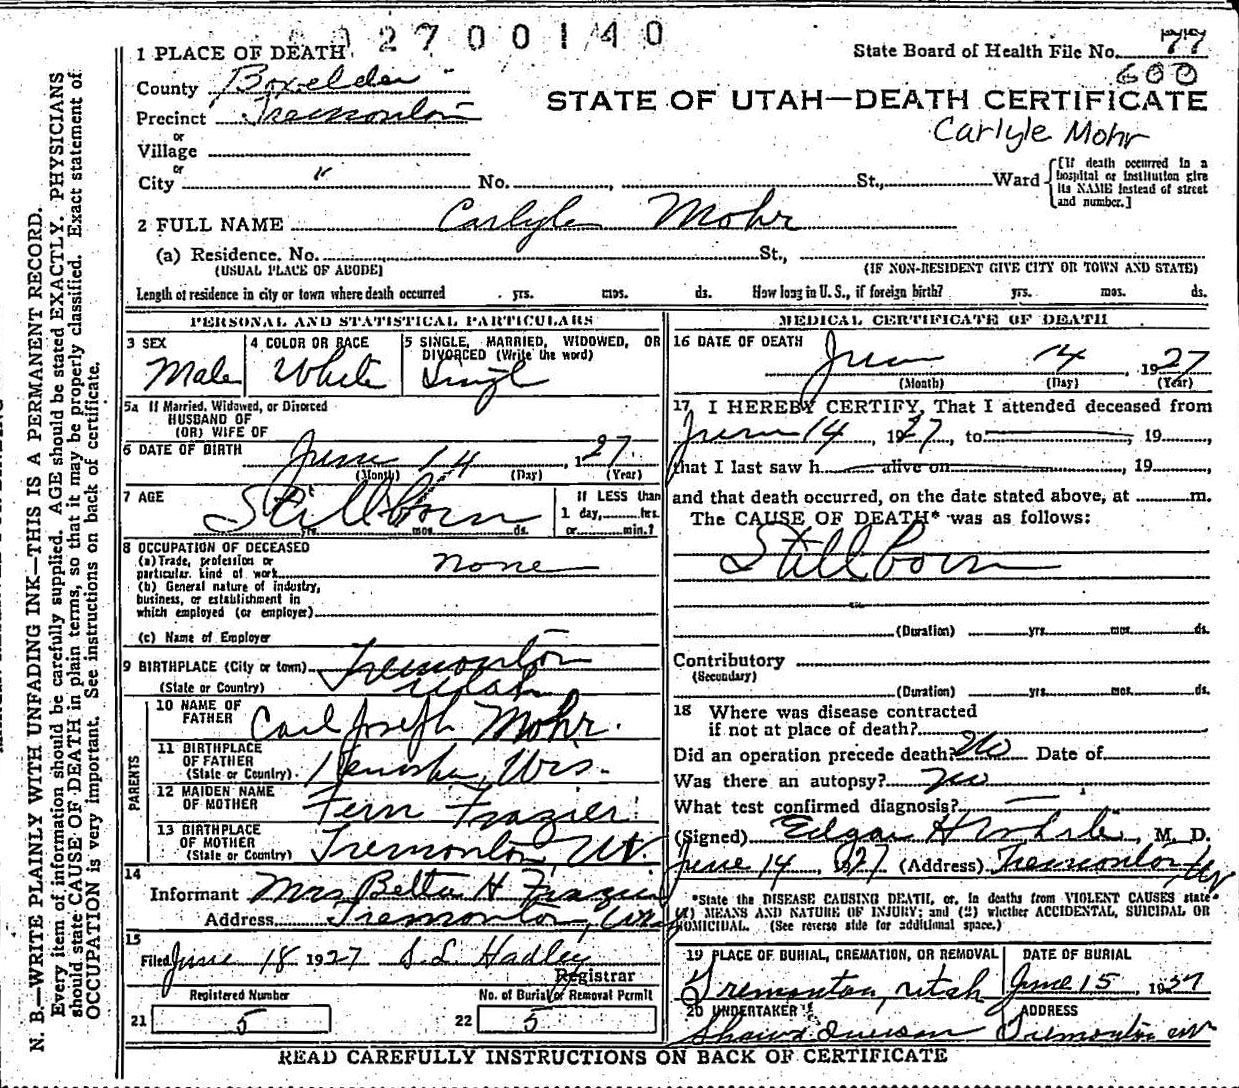 2700140
1 PLACE OF DEATH
State Board of Health File No. 77
600
County Boxelder
STATE OF UTAH—DEATH CERTIFICATE
Precinct Tremonton
Carlyle Mohr
or
Village
or
City " No. , St., Ward
[If death occurred in a
hospital or institution give
its NAME instead of street
and number.]
2 FULL NAME Carlyle Mohr
(a) Residence. No. St.,
(USUAL PLACE OF ABODE) (IF NON-RESIDENT GIVE CITY OR TOWN AND STATE)
Length of residence in city or town where death occurred yrs. mos. ds. How long in U. S., if foreign birth? yrs. mos. ds.
PERSONAL AND STATISTICAL PARTICULARS
3 SEX
Male
4 COLOR OR RACE
White
5 SINGLE, MARRIED, WIDOWED, OR
DIVORCED (Write the word)
Singl
5a If Married, Widowed, or Divorced
HUSBAND OF
(OR) WIFE OF
6 DATE OF BIRTH June 14, 1927
(Month) (Day) (Year)
7 AGE
Stillborn
yrs. mos. ds.
If LESS than
1 day, hrs.
or min.?
8 OCCUPATION OF DECEASED
(a) Trade, profession or
particular kind of work none
(b) General nature of industry,
business, or establishment in
which employed (or employer)
(c) Name of Employer
9 BIRTHPLACE (City or town) Tremonton
(State or Country) Utah
PARENTS
10 NAME OF
FATHER Carl Joseph Mohr.
11 BIRTHPLACE
OF FATHER
(State or Country) Kenosha, Wis.
12 MAIDEN NAME
OF MOTHER Fern Frazier
13 BIRTHPLACE
OF MOTHER
(State or Country) Tremonton Ut.
14
Informant Mrs H Frazier
Address Tremonton, Utah
15
Filed June 18 1927 S. L. Hadley
Registrar
Registered Number
21 5
No. of Burial or Removal Permit
22 5
MEDICAL CERTIFICATE OF DEATH
16 DATE OF DEATH
June 14, 1927
(Month) (Day) (Year)
17 I HEREBY CERTIFY, That I attended deceased from
June 14, 1927, to , 19 ,
that I last saw h alive on , 19 ,
and that death occurred, on the date stated above, at m.
The CAUSE OF DEATH* was as follows:
Stillborn
(Duration) yrs. mos. ds.
Contributory
(Secondary)
(Duration) yrs. mos. ds.
18 Where was disease contracted
if not at place of death?
Did an operation precede death? No Date of
Was there an autopsy? no
What test confirmed diagnosis? —
(Signed) Edgar H , M. D.
June 14, 1927 (Address) Tremonton, Ut
*State the DISEASE CAUSING DEATH, or, in deaths from VIOLENT CAUSES state
(1) MEANS AND NATURE OF INJURY; and (2) whether ACCIDENTAL, SUICIDAL OR
HOMICIDAL. (See reverse side for additional space.)
19 PLACE OF BURIAL, CREMATION, OR REMOVAL
Tremonton, Utah
DATE OF BURIAL
June 15, 1927
20 UNDERTAKER
Shaw & Iverson
ADDRESS
Tremonton Ut
READ CAREFULLY INSTRUCTIONS ON BACK OF CERTIFICATE
N. B.—WRITE PLAINLY WITH UNFADING INK—THIS IS A PERMANENT RECORD.
Every item of information should be carefully supplied. AGE should be stated EXACTLY. PHYSICIANS
should state CAUSE OF DEATH in plain terms, so that it may be properly classified. Exact statement of
OCCUPATION is very important. See instructions on back of certificate.